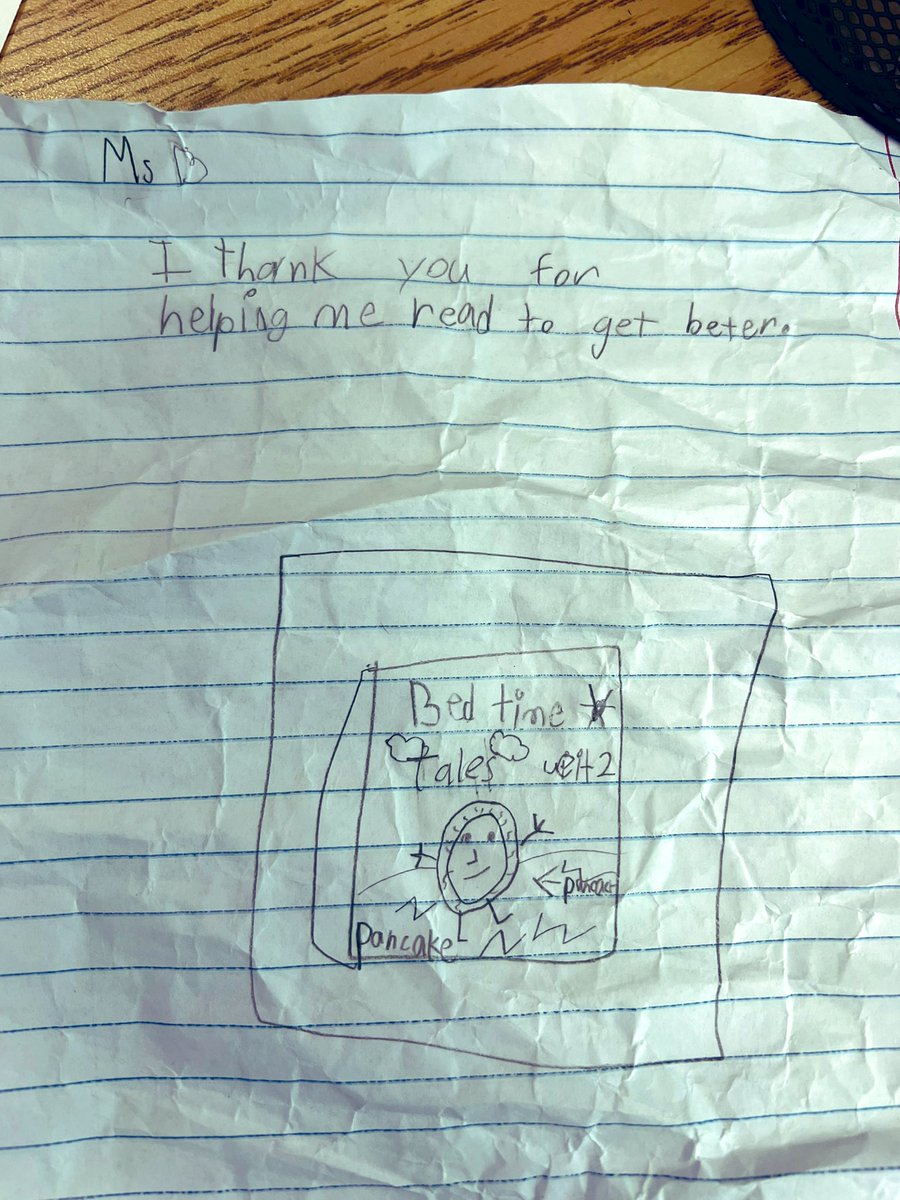 Ms B
I thank you for
helping me read to get beter.
Bed time
tales 2
pancake